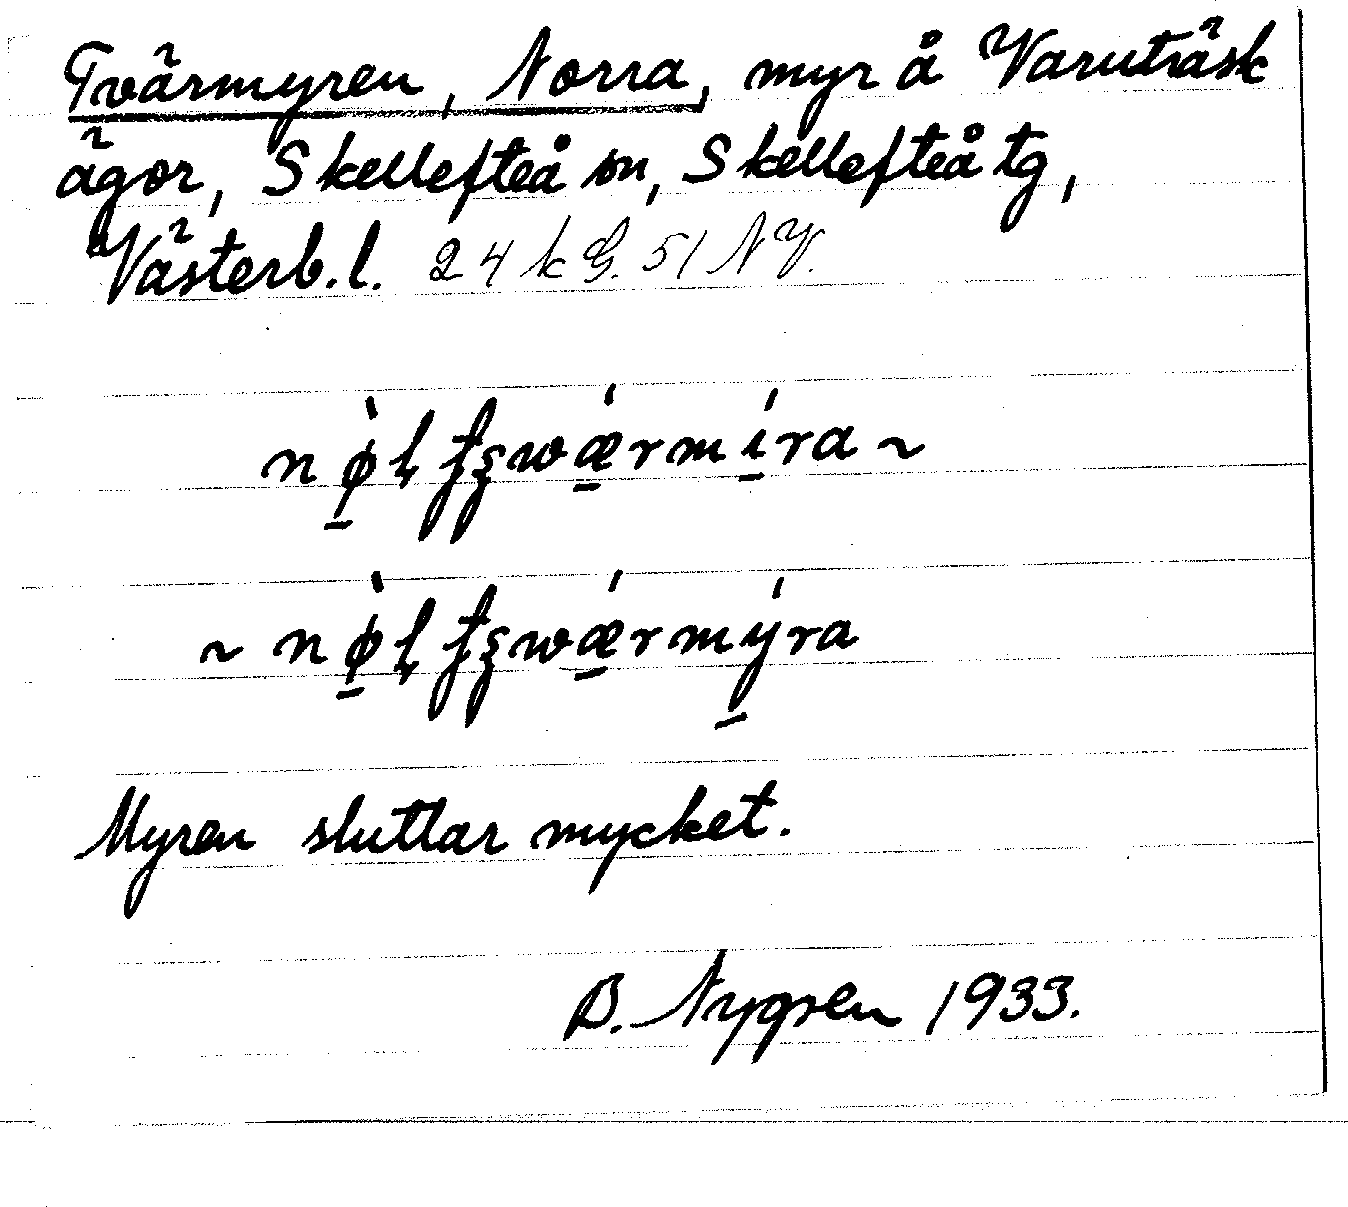 Tvärmyren, Norra, myr å Varuträsk
ägor, Skellefteå sn, Skellefteå tg,
Västerb. l. 24 k G. 51 N V.
nø̀ꞎ tʂwǽrmíra ~
~ nø̀ꞎ tʂwǽrmýra
Myren sluttar mycket.
B. Nygren 1933.